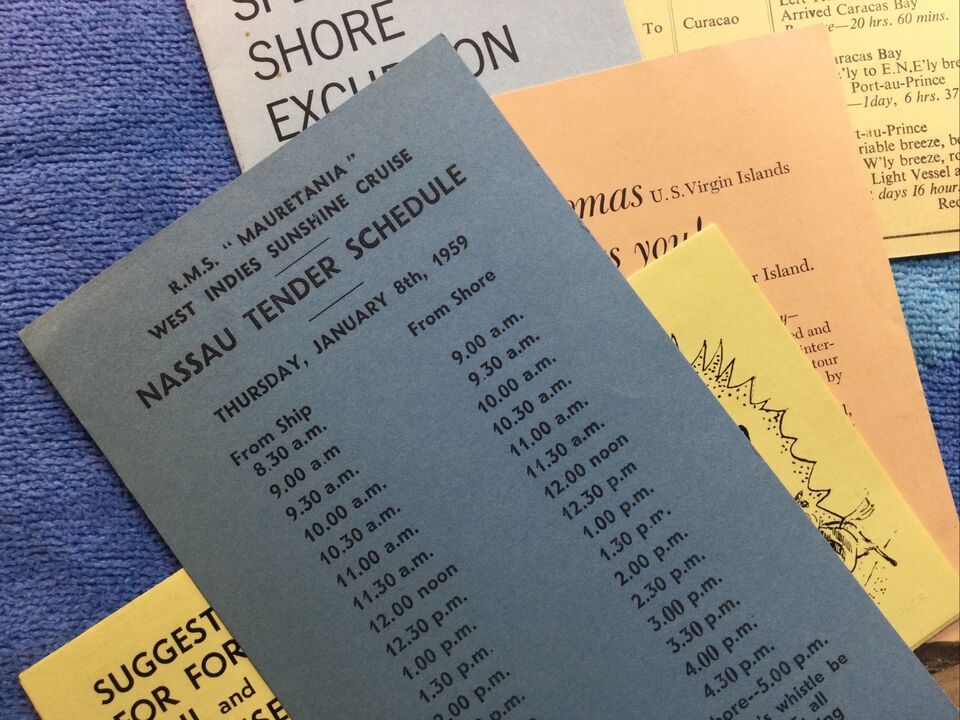 SHORE
R.M.S. "MAURETANIA"
WEST INDIES SUNSHINE CRUISE
NASSAU TENDER SCHEDULE
THURSDAY, JANUARY 8th, 1959
From Ship From Shore
8.30 a.m. 9.00 a.m.
9.00 a.m 9.30 a.m.
9.30 a.m. 10.00 a.m.
10.00 a.m. 10.30 a.m.
10.30 a.m. 11.00 a.m.
11.00 a.m. 11.30 a.m.
11.30 a.m. 12.00 noon
12.00 noon 12.30 p.m
12.30 p.m. 1.00 p.m.
1.00 p.m. 1.30 p.m.
1.30 p.m. 2.00 p.m.
2.00 p.m. 2.30 p.m.
p.m. 3.00 p.m.
3.30 p.m.
4.00 p.m.
4.30 p.m.
hore--5.00 p.m.
's whistle be
all
To Curacao
Arrived Caracas Bay
—20 hrs. 60 mins.
aracas Bay
'ly to E.N.E'ly bre
Port-au-Prince
—1day, 6 hrs. 37
t-au-Prince
riable breeze, be
W'ly breeze, ro
Light Vessel a
days 16 hour
Rec
omas U.S. Virgin Islands
s you!
r Island.
y—
ed and
inter-
tour
by
SUGGEST
FOR FOR
and